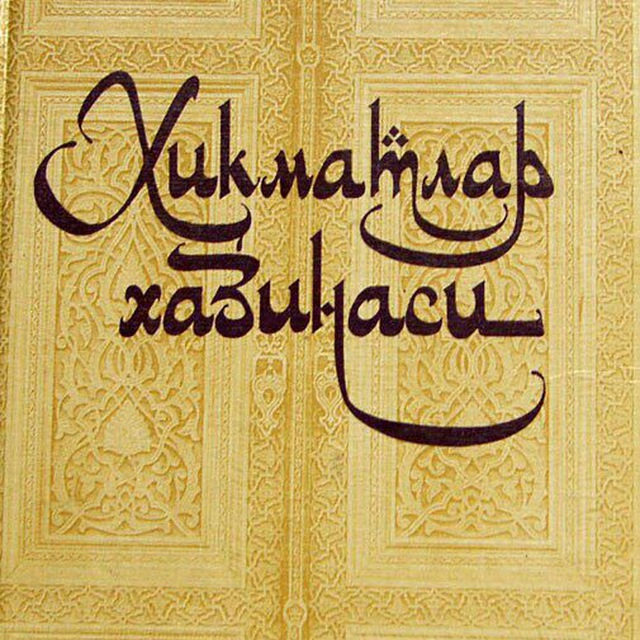 Хикматлар
хазинаси